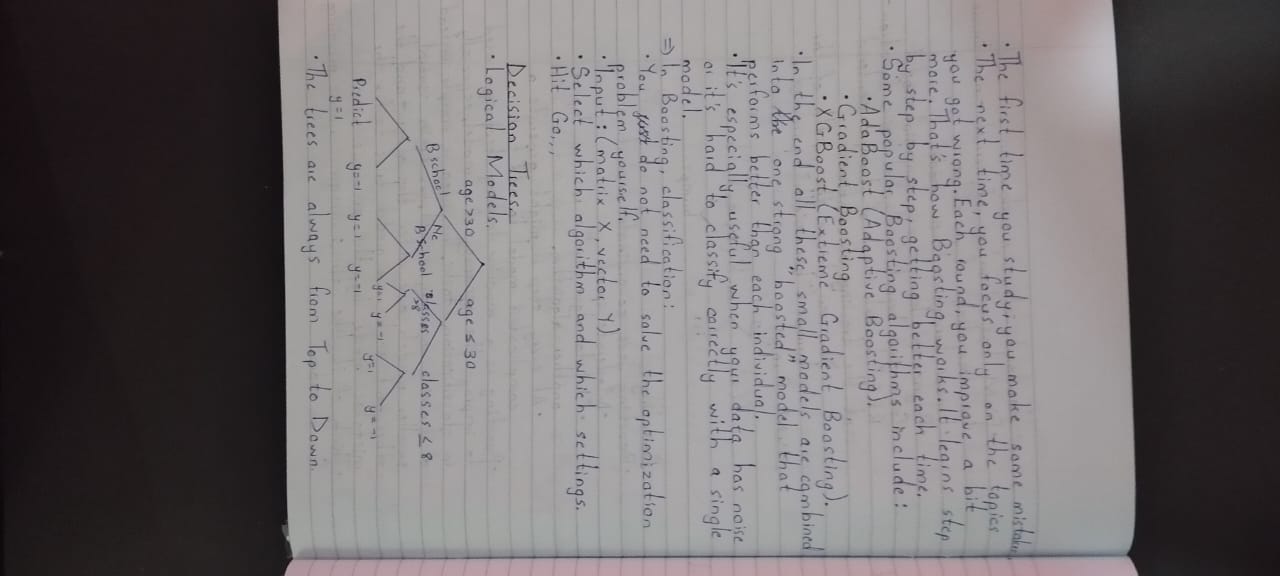 • The first time you study, you make some mistakes.
• The next time, you focus only on the topics
you got wrong. Each round, you improve a bit
more. That's how Boosting works. It begins step
by step by step, getting better each time.
• Some popular Boosting algorithms include:
• AdaBoost (Adaptive Boosting).
• Gradient Boosting
• XGBoost (Extreme Gradient Boosting).
• In the end all these small models are combined
into the one strong "boosted" model that
performs better than each individual.
• It's especially useful when your data has noise
or it's hard to classify correctly with a single
model.
⇒ In Boosting, classification:
• You just do not need to solve the optimization
problem yourself.
• Input: (matrix X, vector Y)
• Select which algorithm and which settings.
• Hit Go...
Decision Trees:-
• Logical Models.
age>30 age ≤ 30
B school No B school classes >8 classes ≤ 8
Predict y=1 y=-1 y=1 y=-1 y=1 y=-1 y=1 y=-1
• The trees are always from Top to Down.